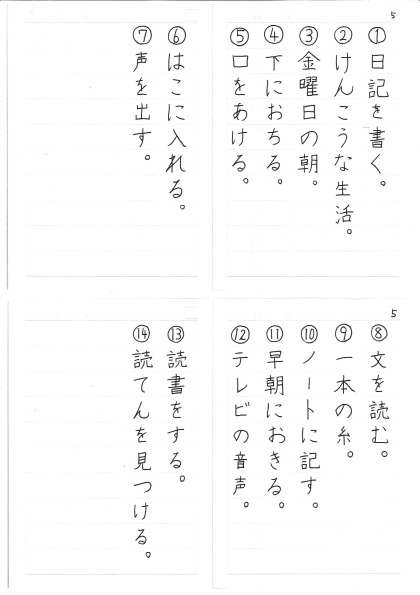 5
①日記を書く。
②けんこうな生活。
③金曜日の朝。
④下におちる。
⑤口をあける。
⑥はこに入れる。
⑦声を出す。
5
⑧文を読む。
⑨一本の糸。
⑩ノートに記す。
⑪早朝におきる。
⑫テレビの音声。
⑬読書をする。
⑭読てんを見つける。